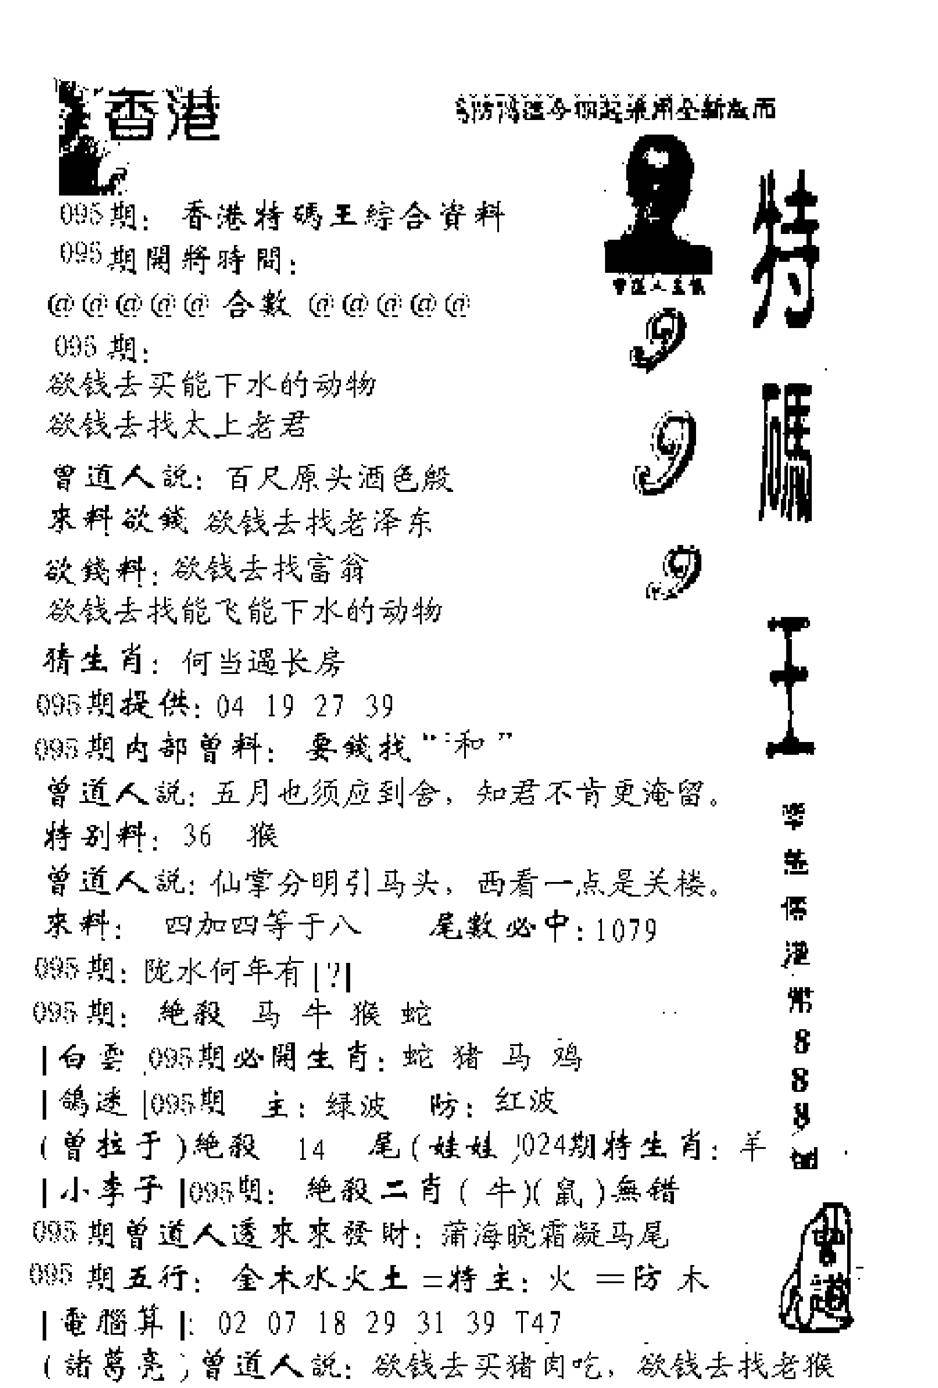 香港
095期：香港特碼王綜合資料
095期開將時間：
@@@@@合數@@@@@
095期：
欲钱去买能下水的动物
欲钱去找太上老君
曾道人説：百尺原头酒色殷
來料欲錢 欲钱去找老泽东
欲錢料：欲钱去找富翁
欲钱去找能飞能下水的动物
猜生肖：何当遇长房
095期提供：04 19 27 39
095期内部曾料：要錢找“和”
曾道人説：五月也须应到舍，知君不肯更淹留。
特别料：36 猴
曾道人説：仙掌分明引马头，西看一点是关楼。
來料：四加四等于八 尾數必中：1079
095期：陇水何年有|?|
095期：絶殺 马 牛 猴 蛇
|白雲 095期必開生肖：蛇 猪 马 鸡
|鴿迷|095期 主：绿波 防：红波
(曾拉于)絶殺 14 尾(娃娃)024期特生肖：羊
|小李子|095期：絶殺二肖(牛)(鼠)無错
095期曾道人透來來發財：蒲海晓霜凝马尾
095期五行：金木水火土=特主：火 =防 木
|電腦算|：02 07 18 29 31 39 T47
(諸葛亮)曾道人説：欲钱去买猪肉吃，欲钱去找老猴
曾道人
特碼王
9
9
9
港幣
888
曾道